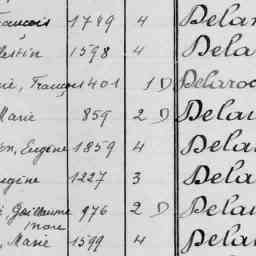 ançois 1789 4 Delar
lestin 1598 4 Dela
ie, François 401 1 D Delaroc
Marie 859 2 D Delau
on, Eugène 1859 4 Dela
ugène 1227 3 Dela
Guillaume 976 2 D Delau
Marc
, Marie 1599 4 Dela